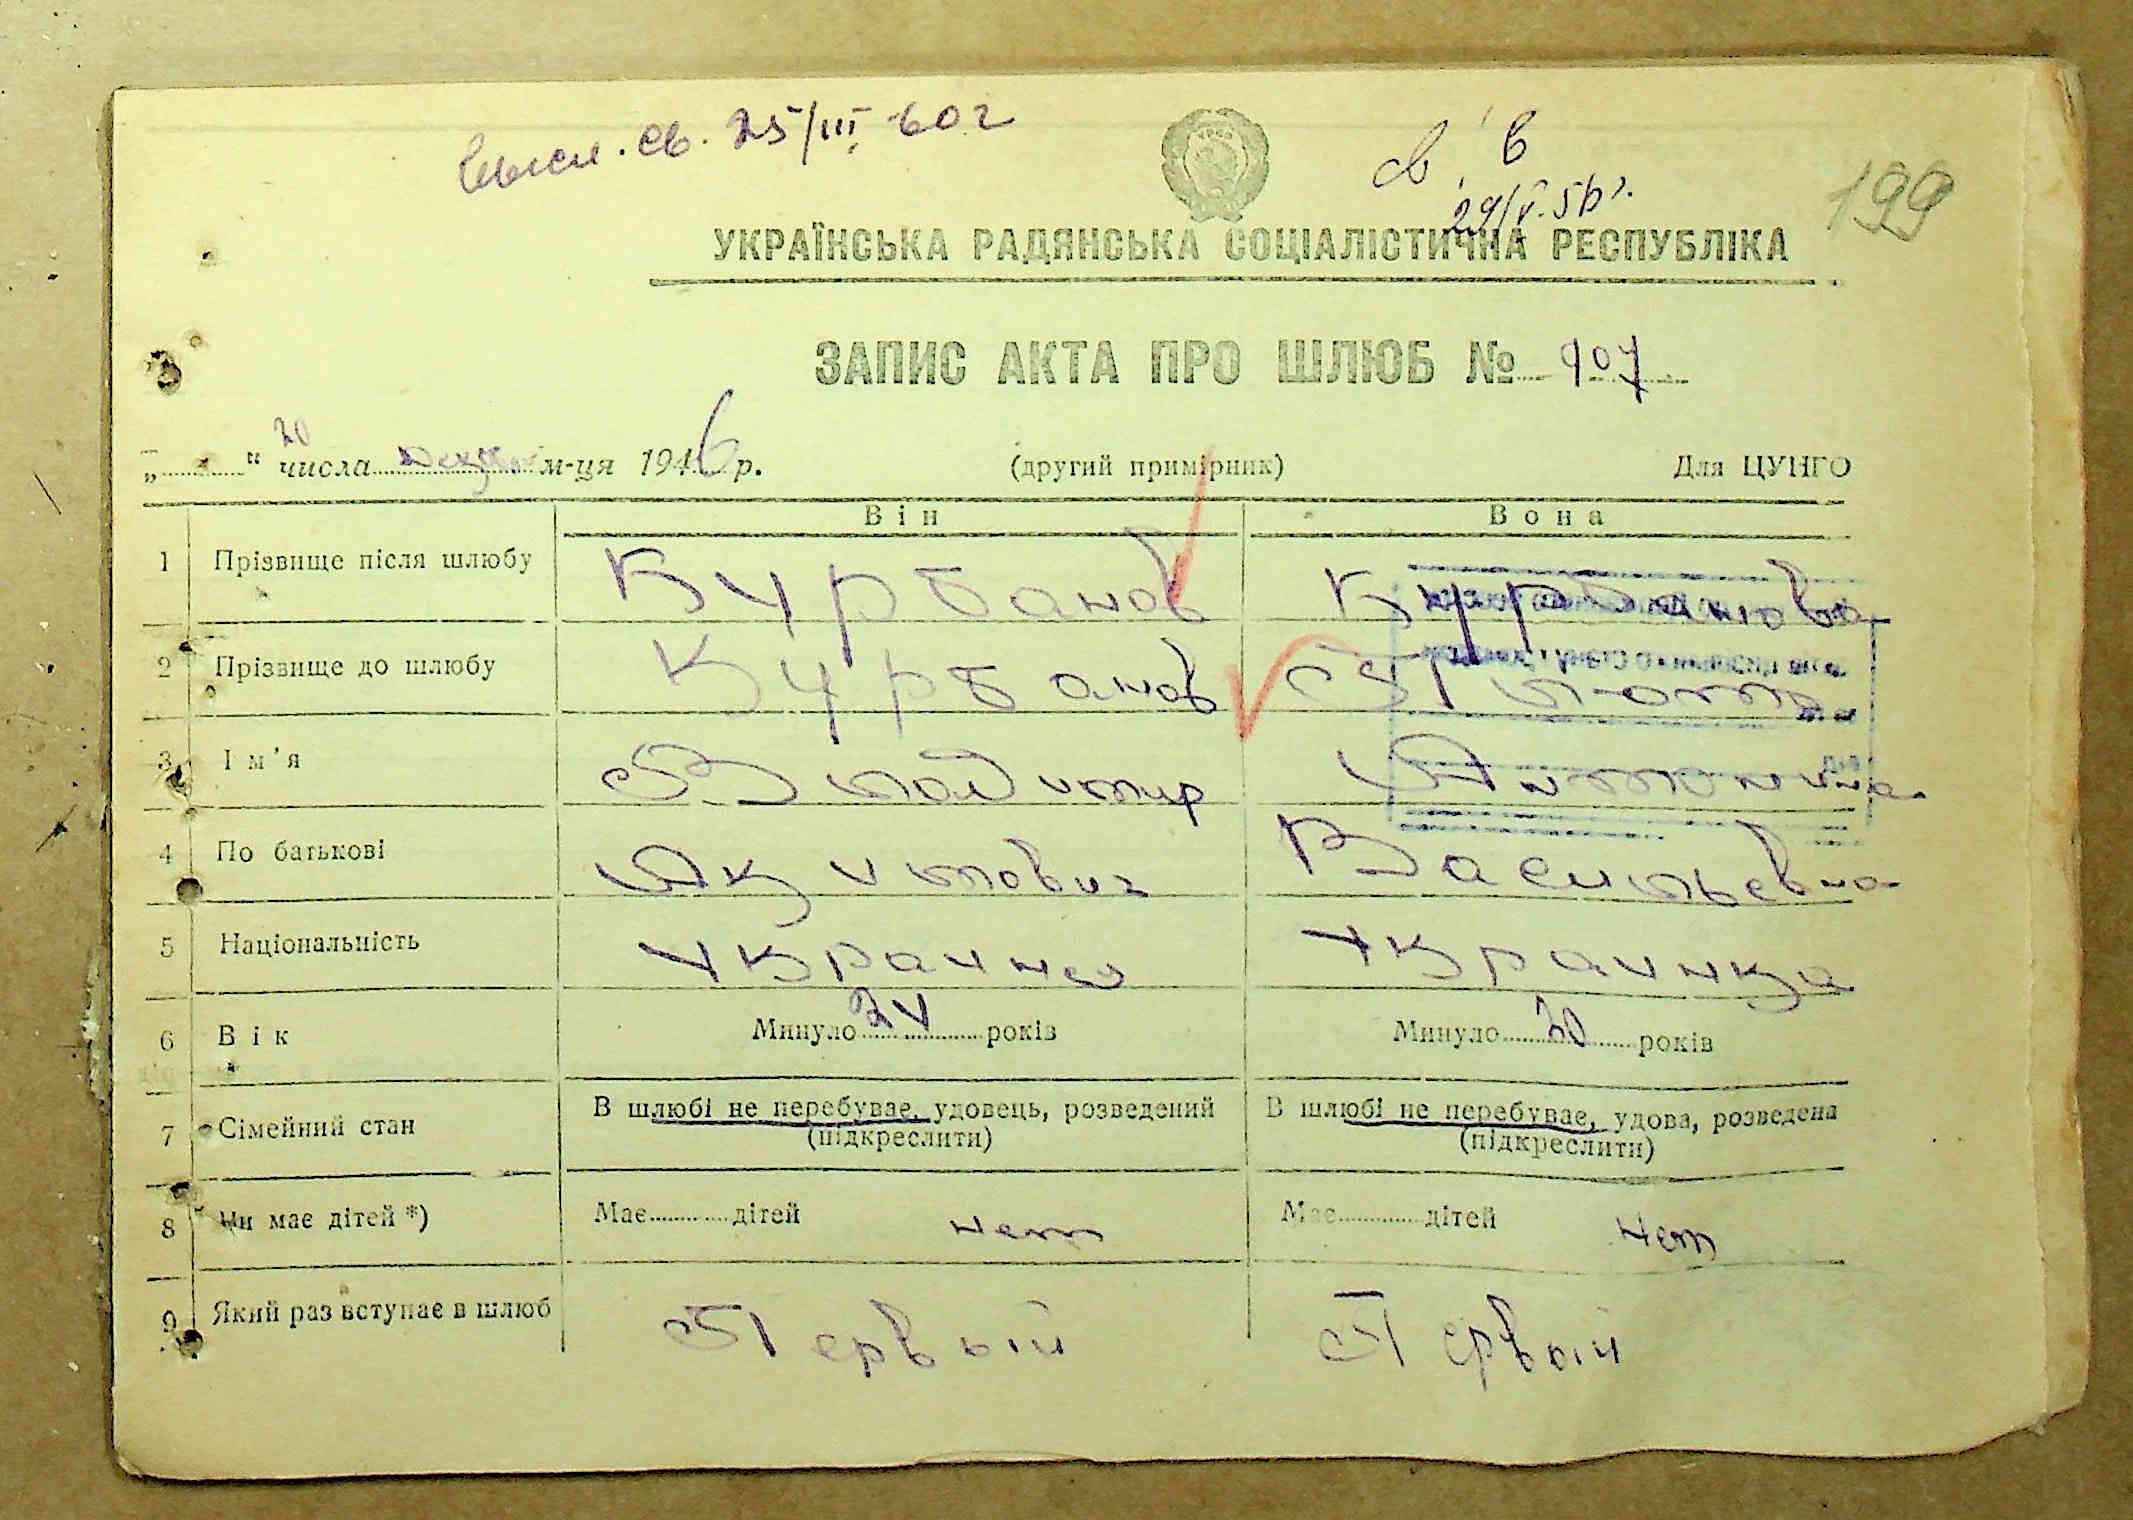 высл. св. 25/III 60 г
св. в
29/V. 56 г.
199
УКРАЇНСЬКА РАДЯНСЬКА СОЦІАЛІСТИЧНА РЕСПУБЛІКА
ЗАПИС АКТА ПРО ШЛЮБ № 907
„ “ 20 числа м-ця 1946 р. (другий примірник) Для ЦУНГО
Він Вона
1 Прізвище після шлюбу Курбанов Курбанова
2 Прізвище до шлюбу Курбанов
3 Ім'я Владимир Антонина
4 По батькові Акимович Васильевна
5 Національність Украинец Украинка
6 Вік Минуло 24 років Минуло 20 років
7 Сімейний стан В шлюбі не перебуває, удовець, розведений (підкреслити) В шлюбі не перебуває, удова, розведена (підкреслити)
8 Чи має дітей *) Має дітей нет Має дітей нет
9 Який раз вступає в шлюб Первый Первый